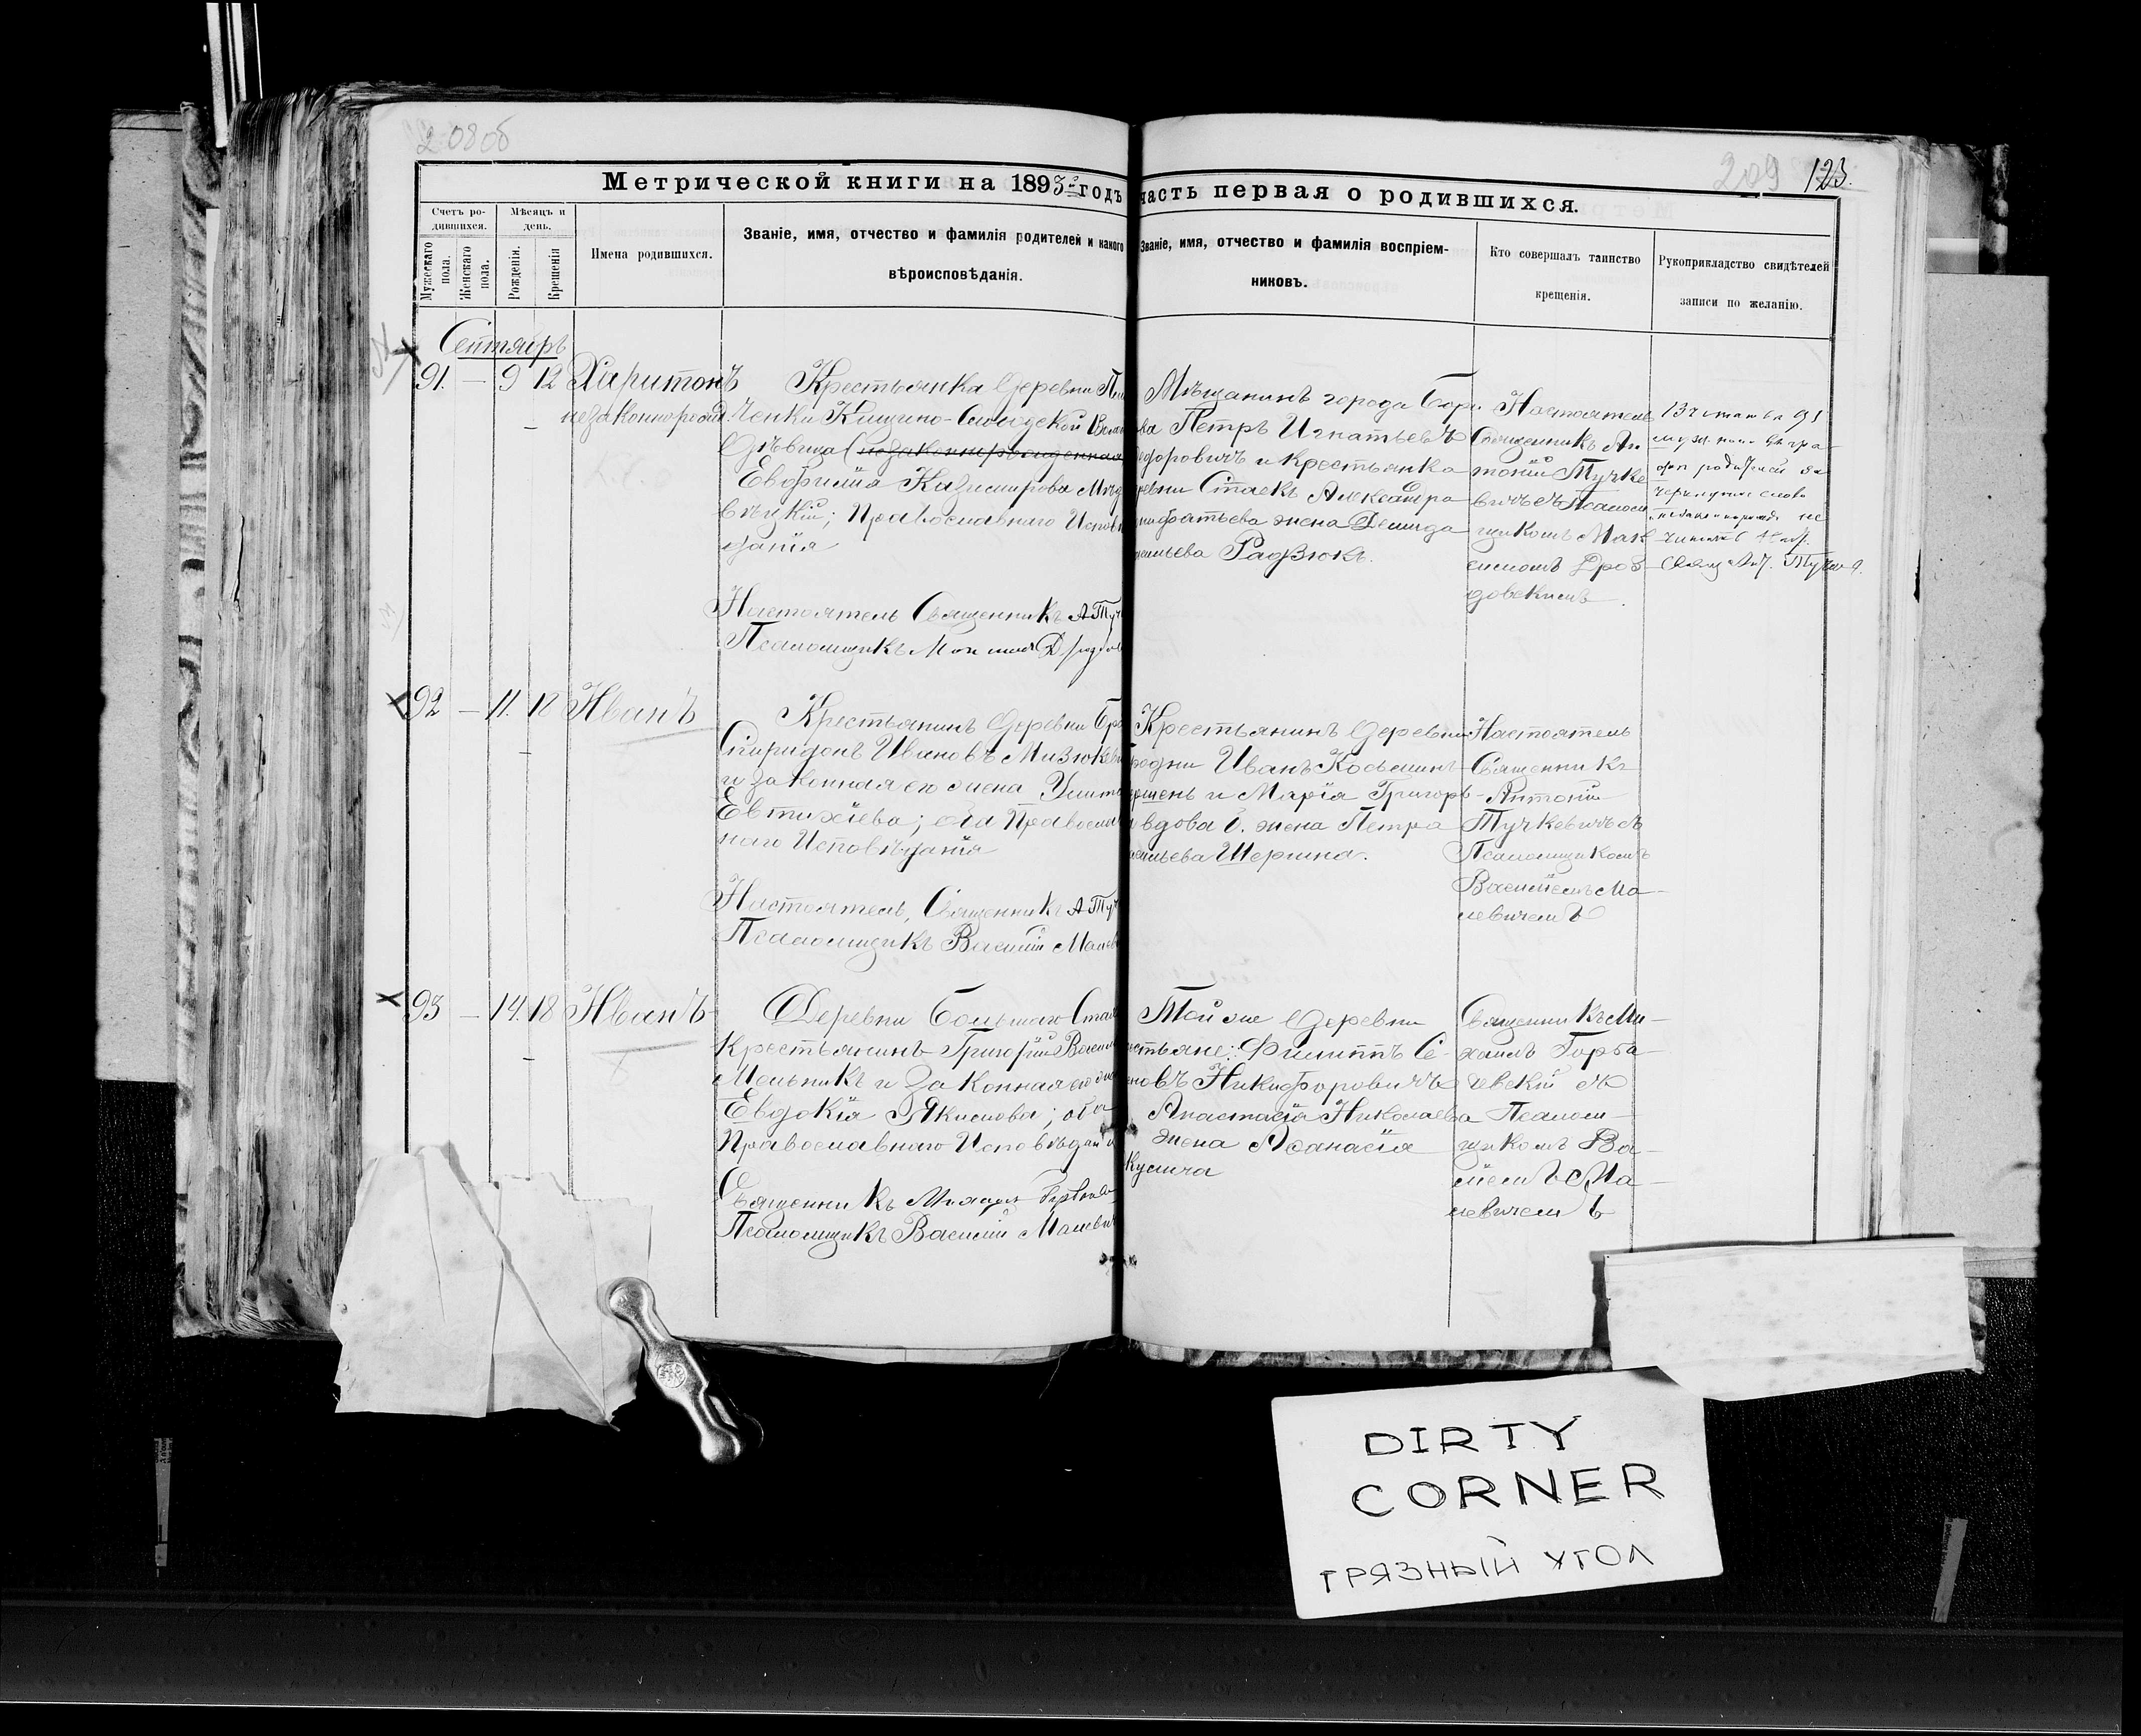 208об
209 123.
Метрической книги на 1893й годъ часть первая о родившихся.
Счетъ родившихся.
Мѣсяцъ и день.
Мужескаго пола.
Женскаго пола.
Рожденія.
Крещенія
Имена родившихся.
Званіе, имя, отчество и фамилія родителей и какого
вѣроисповѣданія.
Званіе, имя, отчество и фамилія воспріем-
никовъ.
Кто совершалъ таинство
крещенія.
Рукоприкладство свидѣтелей
записи по желанію.
Сентябрь
91. — 9 12 Харитонъ
незаконнорожд.
Крестьянка Деревни
Дѣвица (незаконнорожденная
Евфимія Казимирова
Православнаго Исповѣ
данія
Настоятель Священникъ А Туч
Псаломщикъ
Мѣщанинъ города Бори
ва Петръ Игнатьевъ
едоровичъ и крестьянка
ревни Стаекъ Александра
жена Демида
сильева Радзюкъ.
Настоятель
Священникъ Ан
тоній Тучке
вичъ съ Псалом
щикомъ Мак
симомъ Дроз
довскимъ.
Въ статьѣ 91
графѣ родителей за
черкнутое слово
не
читать
Свящ. Ант. Тучкев.
92 — 11. 18 Иванъ
Крестьянинъ Деревни Бро
Спиридонъ Ивановъ Мизюкеви
и законная его жена
Евтихіева; оба Правосла
наго Исповѣданія
Настоятель, Священникъ А Туч
Псаломщикъ Василій Малев
Крестьянинъ Деревни
родни Иванъ Косьминъ
ршень и Марія Григорь
вдова б. жена Петра
сильева Шершна.
Настоятель
Священникъ
Антоній
Тучкевичъ съ
Псаломщикомъ
Василіемъ Ма-
левичемъ
93 — 14. 18 Иванъ
Деревни Большаго Стах
Крестьянинъ Григорій Васил
Мельникъ и законная его жен
Евдокія Якимова; оба
Православнаго Исповѣдані
Священникъ Михаилъ Горбаче
Псаломщикъ Василій Малевич
Той же Деревни
естьяне: Филиппъ Се-
новъ Никифоровичъ
Анастасія Николаева
жена Аѳанасія
Кузмича
Священникъ Ми-
хаилъ Горба-
чевскій съ
Псалом-
щикомъ Ва-
сіемъ Ма-
левичемъ
DIRTY
CORNER
ГРЯЗНЫЙ УГОЛ